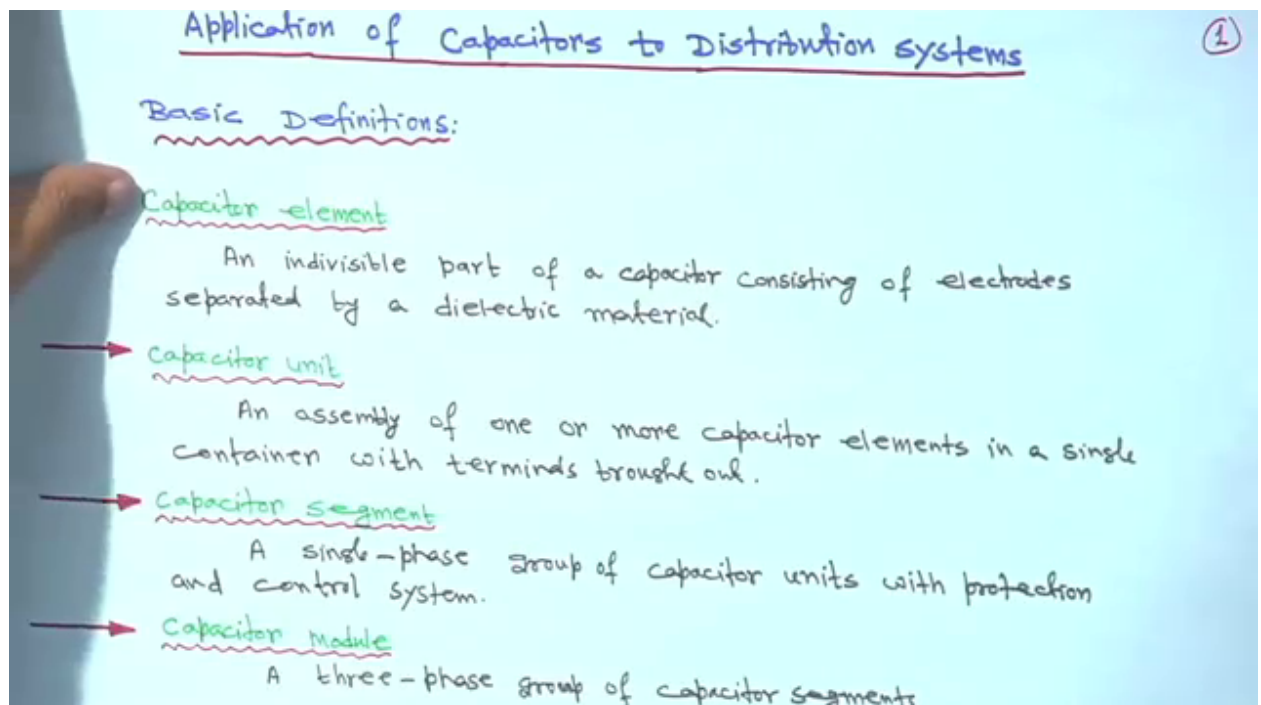 Application of Capacitors to Distribution systems
1
Basic Definitions:
Capacitor element
An indivisible part of a capacitor consisting of electrodes
separated by a dielectric material.
Capacitor unit
An assembly of one or more capacitor elements in a single
container with terminals brought out.
Capacitor segment
A single-phase group of capacitor units with protection
and control system.
Capacitor module
A three-phase group of capacitor segments